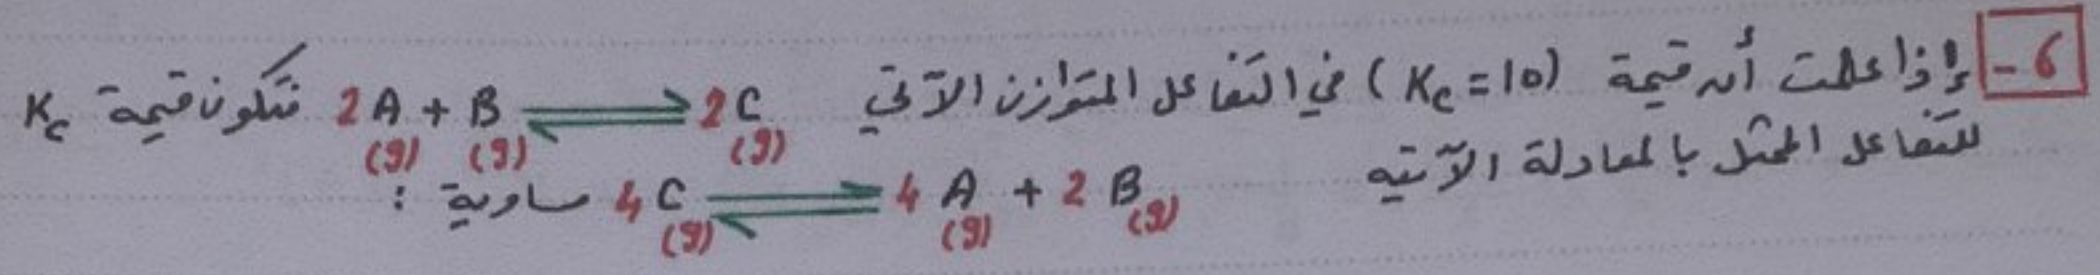 6- إذا علمت أن قيمة (Kc = 10) في التفاعل المتوازن الآتي 2A(g) + B(g) ⇌ 2C(g) فتكون قيمة Kc
للتفاعل الممثل بالمعادلة الآتية 4C(g) ⇌ 4A(g) + 2B(g) مساوية :